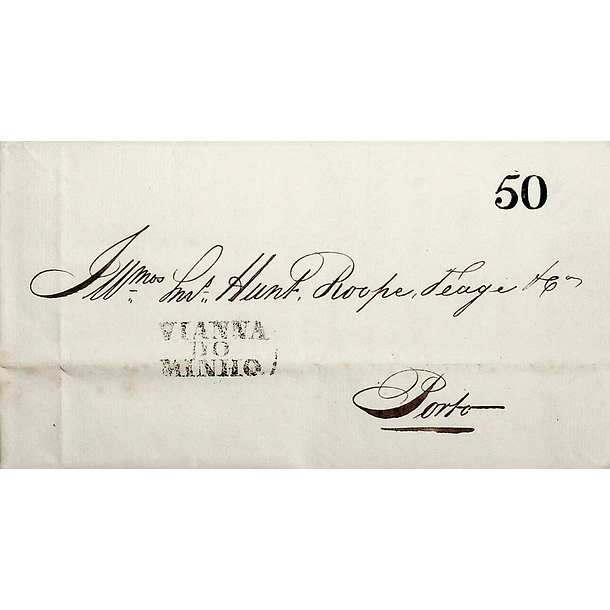 50
Illmos Snrs. Hunt, Roope, Teage & Co
VIANNA
DO
MINHO
Porto